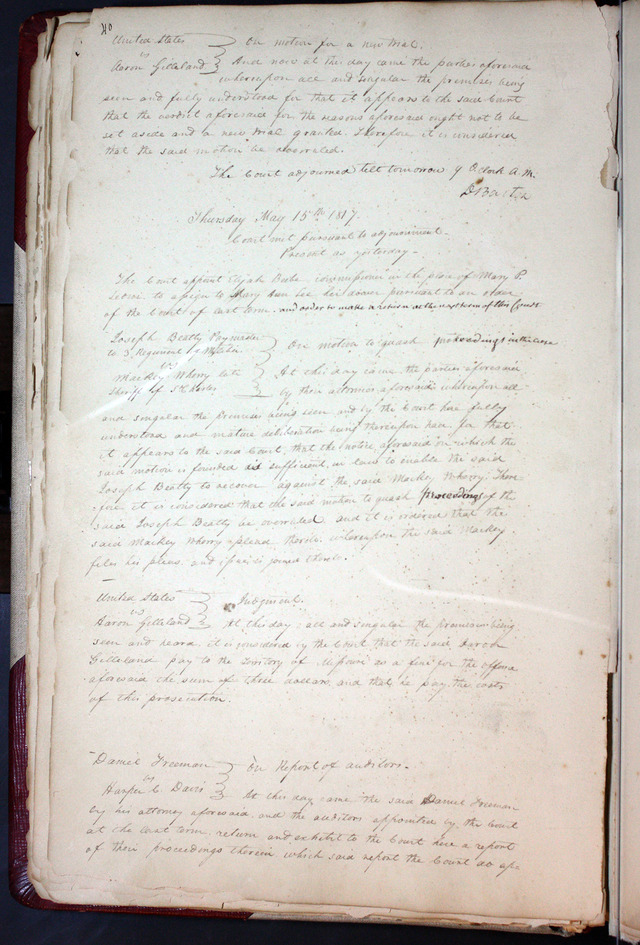 40
United States } On motion for a new trial.
vs
Aaron Gilleland } And now at this day came the parties aforesaid
whereupon all and singular the premises being
seen and fully understood for that it appears to the said Court
that the verdict aforesaid for the reasons aforesaid ought not to be
set aside and a new trial granted. Therefore it is considered
that the said motion be overruled.
The Court adjourned till tomorrow 9 Oclock A.M.
D Barton
Thursday May 15th 1817.
Court met pursuant to adjournment.
Present as yesterday.
The Court appoint Elijah Beebe commissioner in the place of Mary P.
to assign to Mary Ann Lee her dower pursuant to an order
of the Court of last term. and order to make a return at the next term of this Court
Joseph Beatty Paymaster
to 3 Regiment of } On motion to quash proceedings in the case
vs
Mackey Wherry late } At this day came the parties aforesaid
Sheriff of St Charles } by their attornies aforesaid whereupon all
and singular the premises being seen and by the Court here fully
understood and mature deliberation being thereupon had for that
it appears to the said Court, that the notice aforesaid on which the
said motion is founded is sufficient in law to enable the said
Joseph Beatty to recover against the said Mackey Wherry. There
fore it is considered that the said motion to quash proceedings of the
said Joseph Beatty be overruled and it is ordered that the
said Mackey Wherry plead thereto. whereupon the said Mackey
files his pleas. and issue is joined thereto.
United States } Judgment.
vs
Aaron Gilleland } At this day all and singular the premises being
seen and heard. it is considered by the Court that the said Aaron
Gilleland pay to the Territory of Missouri as a fine for the offence
aforesaid the sum of three dollars and that he pay the costs
of this prosecution.
Daniel Freeman } On Report of auditors.
vs
Harper C. Davis } At this day came the said Daniel Freeman
by his attorney aforesaid and the auditors appointed by the Court
at the last term, return and exhibit to the Court here a report
of their proceedings therein which said report the Court do ap